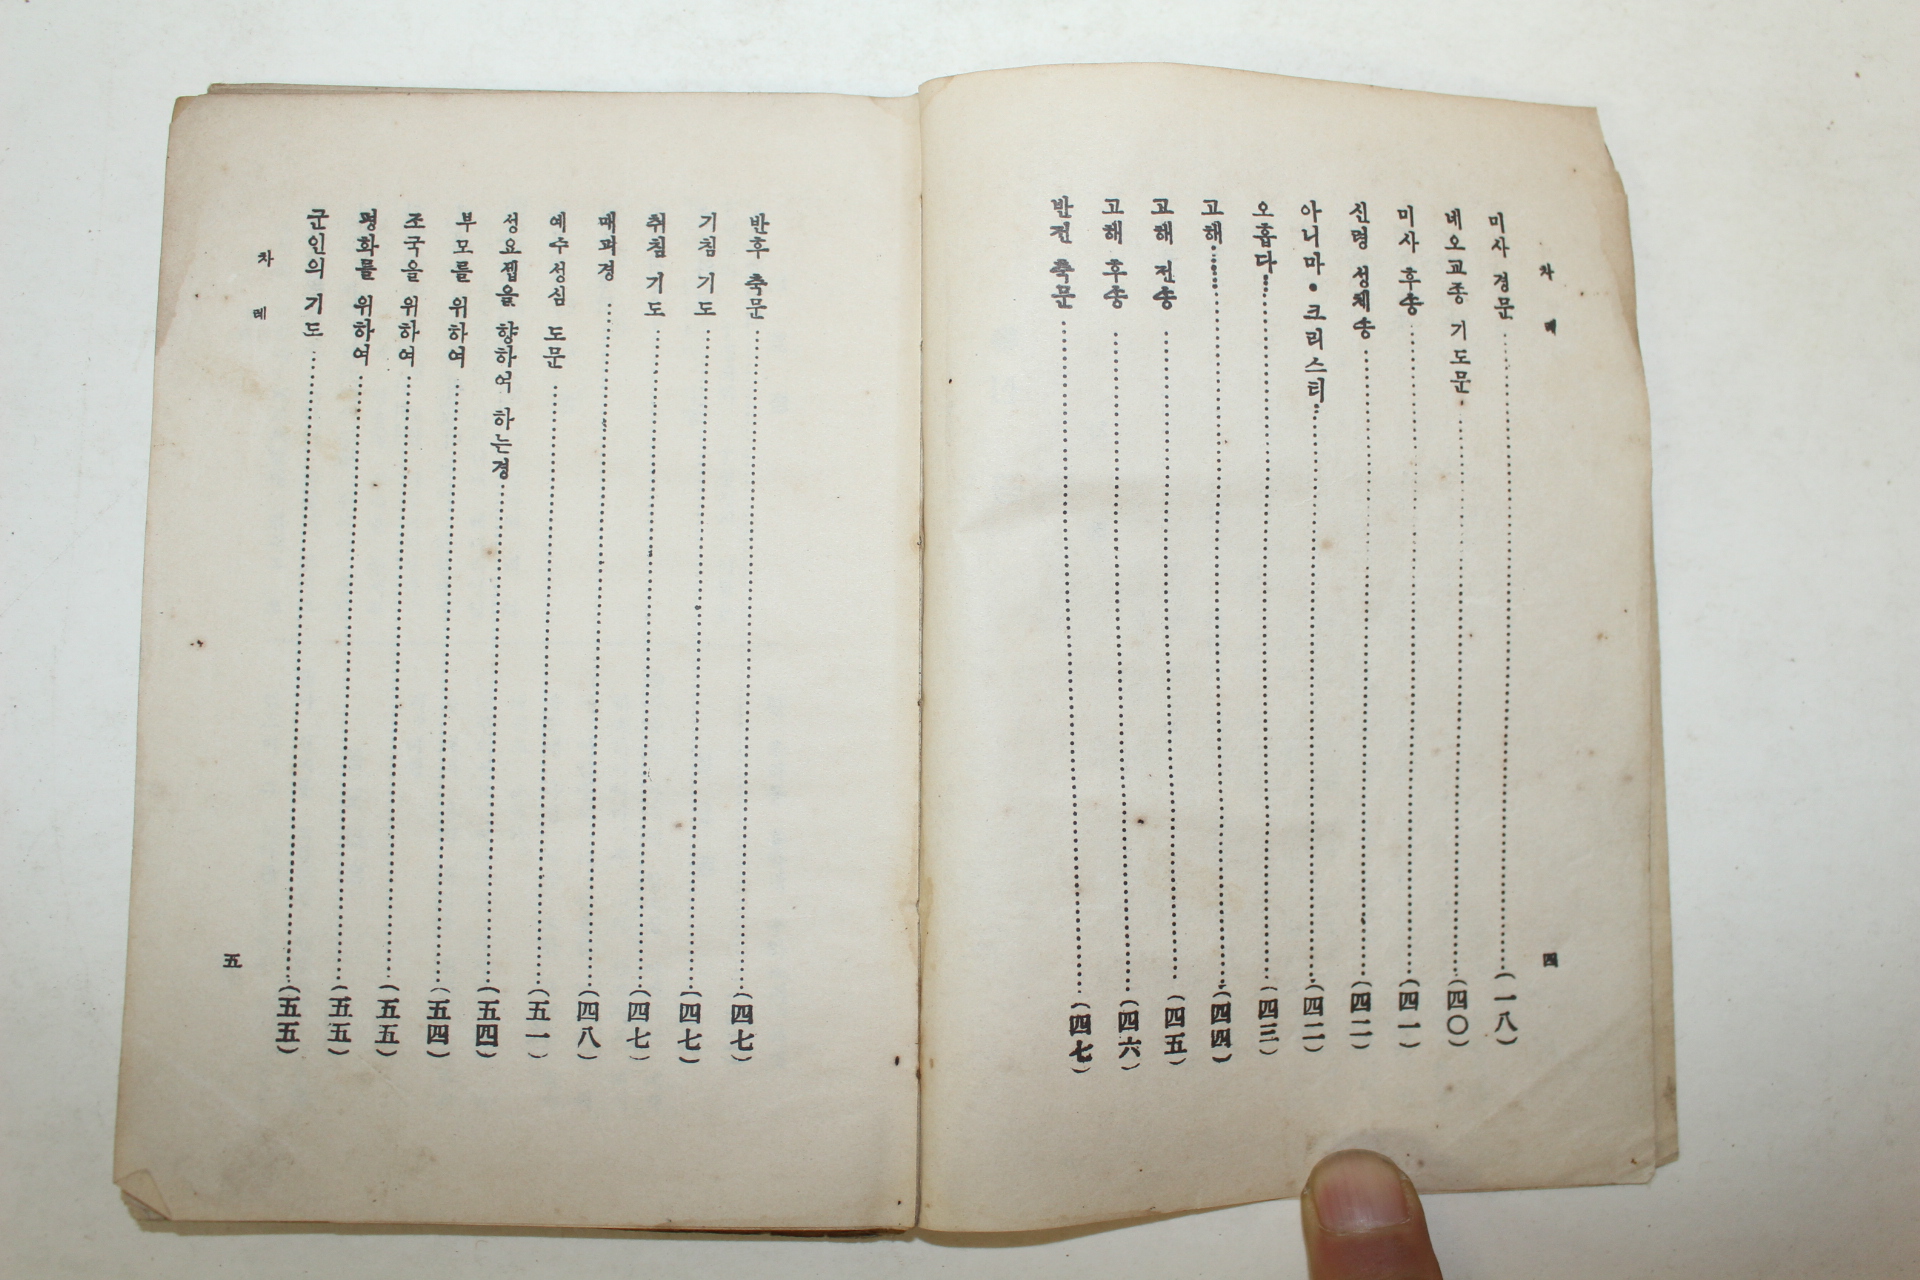 차 례
四
미사 경문 (一八)
네오교종 기도문 (四〇)
미사 후송 (四一)
신령 성체송 (四二)
아니마·크리스티 (四二)
오흡다 (四三)
고해 (四四)
고해 전송 (四五)
고해 후송 (四六)
반전 축문 (四七)
반후 축문 (四七)
기침 기도 (四七)
취침 기도 (四七)
매괴경 (四八)
예수성심 도문 (五一)
성요셉을 향하여 하는경 (五四)
부모를 위하여 (五四)
조국을 위하여 (五五)
평화를 위하여 (五五)
군인의 기도 (五五)
차 례
五